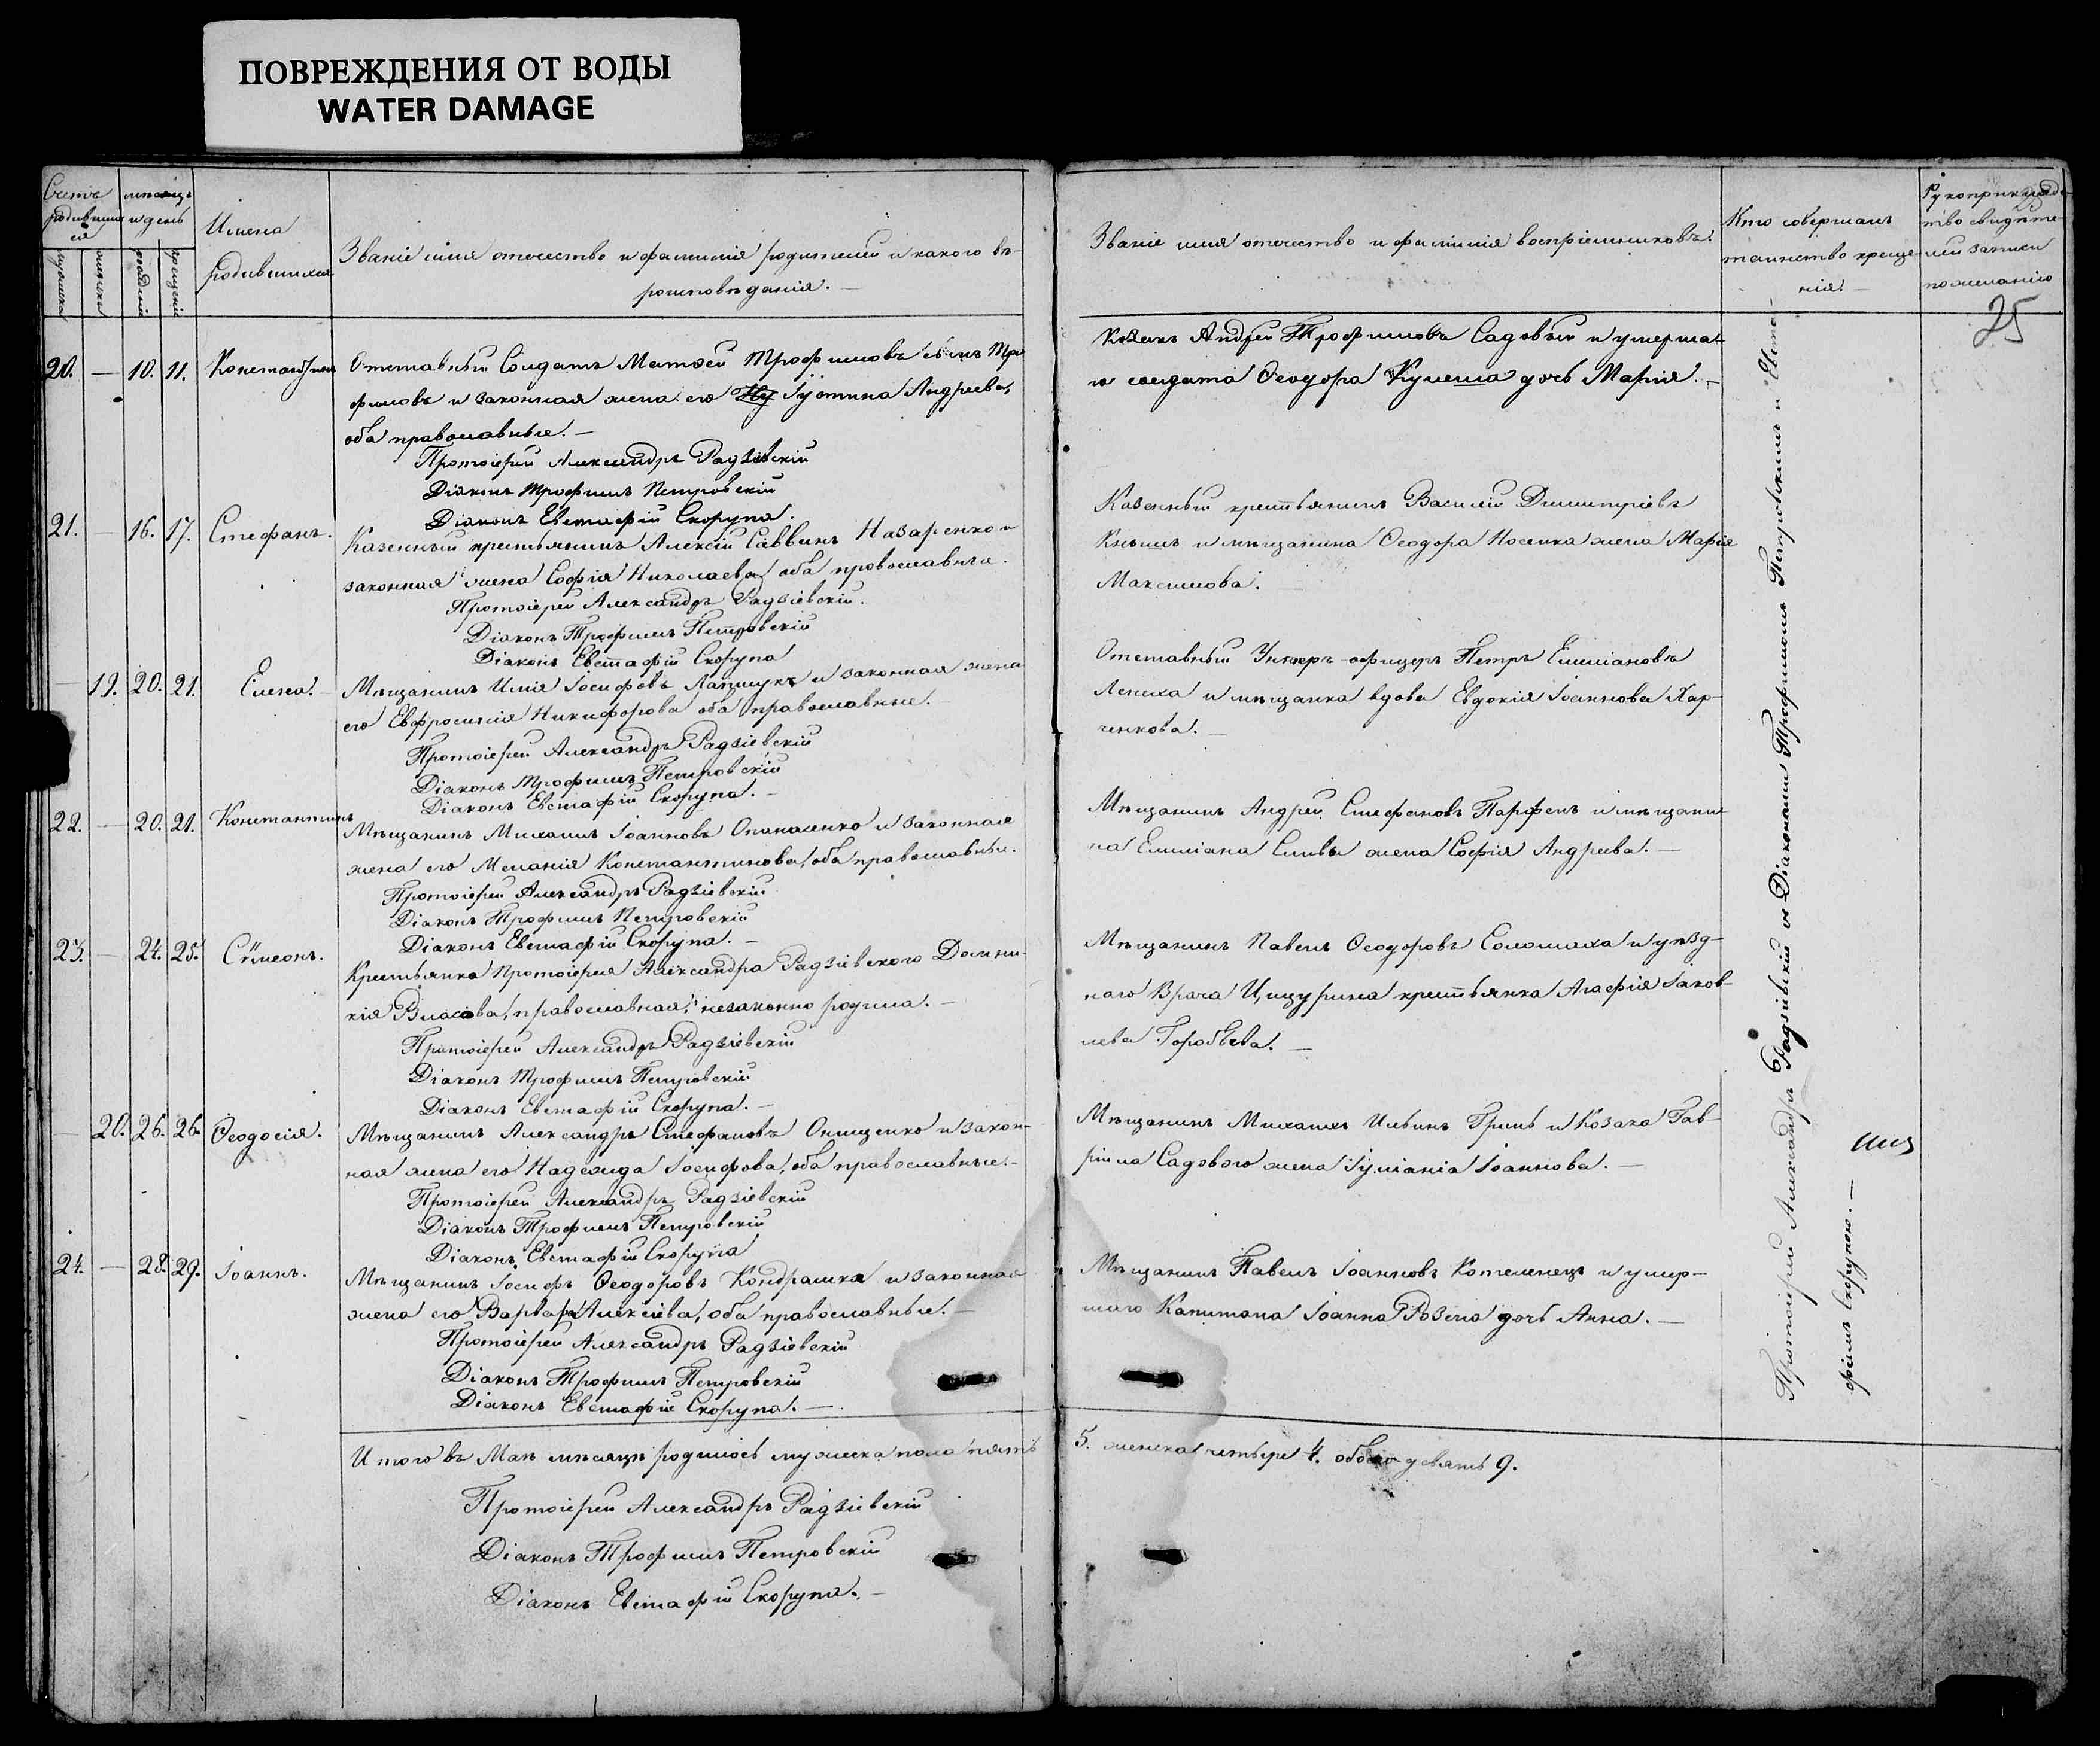 ПОВРЕЖДЕНИЯ ОТ ВОДЫ
WATER DAMAGE
Счетъ родившихся
мѣсяцъ и день
Имена родившихся
Званіе имя отчество и фамилія родителей и какого вѣ-
роисповѣданія. —
20. — 10. 11. Константинъ
Отставный Солдатъ Матѳей Трофимовъ
фимовъ и законная жена его Іустина Андреева,
оба православные. —
Протоіерей Александръ Радзіевскій
Діаконъ Трофимъ Петровскій
Діаконъ Евстафій Скорупа.
21. — 16. 17. Стефанъ.
Казенный крестьянинъ Алексій Саввинъ Назаренко и
законная жена Софія Николаева, оба православные.
Протоіерей Александръ Радзіевскій.
Діаконъ Трофимъ Петровскій
Діаконъ Евстафій Скорупа
— 19. 20. 21. Елена. —
Мѣщанинъ Илія Іосифовъ Лапшукъ и законная жена
его Евфросинія Никифорова оба православные. —
Протоіерей Александръ Радзіевскій
Діаконъ Трофимъ Петровскій
Діаконъ Евстафій Скорупа. —
22. — 20. 21. Константинъ
Мѣщанинъ Михаилъ Іоанновъ Опанасенко и законная
жена его Меланія Константинова, оба православные.
Протоіерей Александръ Радзіевскій
Діаконъ Трофимъ Петровскій
Діаконъ Евстафій Скорупа. —
23. — 24. 25. Сѵмеонъ.
Крестьянка Протоіерея Александра Радзіевского Домни-
кія Власова, православная, незаконно родила. —
Протоіерей Александръ Радзіевскій
Діаконъ Трофимъ Петровскій
Діаконъ Евстафій Скорупа. —
— 20. 26. 26. Ѳеодосія.
Мѣщанинъ Александръ Стефановъ Онищенко и закон-
ная жена его Надежда Іосифова, оба православные. —
Протоіерей Александръ Радзіевскій
Діаконъ Трофимъ Петровскій
Діаконъ Евстафій Скорупа
24. — 28. 29. Іоаннъ.
Мѣщанинъ Іосифъ Ѳеодоровъ Кондрашка и законная
жена его Варвара Алексіева, оба православные. —
Протоіерей Александръ Радзіевскій
Діаконъ Трофимъ Петровскій
Діаконъ Евстафій Скорупа. —
Итого въ Маѣ мѣсяцѣ родилось мужеска пола пять
Протоіерей Александръ Радзіевскій
Діаконъ Трофимъ Петровскій
Діаконъ Евстафій Скорупа. —
Званіе имя отечество и фамилія воспріемниковъ.
Кто совершалъ
таинство креще-
нія. —
Рукоприкладс-
тво свидѣте-
лей записи
по желанію
25
Козакъ Андрей Трофимовъ Садовый и умерша-
го солдата Ѳеодора Кулеша дочь Марія. —
Казенный крестьянинъ Василій Димитріевъ
Кнышъ и мѣщанина Ѳеодора Носенка жена Марія
Максимова. —
Отставный Унтеръ-офицеръ Петръ Емиліановъ
Лепеха и мѣщанка вдова Евдокія Іоаннова Хар-
ченкова. —
Мѣщанинъ Андрей Стефановъ Парфенъ и мѣщани-
на Емиліана Сливы жена Софія Андреева. —
Мѣщанинъ Павелъ Ѳеодоровъ Соломаха и уѣзд-
наго Врача Цицурина крестьянка Агафія Іаков-
лева Горобьева. —
Мѣщанинъ Михаилъ Ильинъ Гринь и Козака Гав-
ріила Садового жена Іуліанія Іоаннова. —
Мѣщанинъ Павелъ Іоанновъ Котеленецъ и умер-
шаго Капитана Іоанна Розена дочь Анна. —
5. женска четыре 4. обоего девять 9.
Протоіерей Александръ Радзіевскій съ Діаконами Трофимомъ Петровскимъ и Евста-
фіемъ Скорупою. —